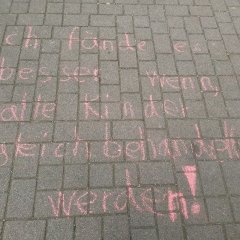 ich fände es
besser wenn
alle kinder
gleich behandelt
werden!